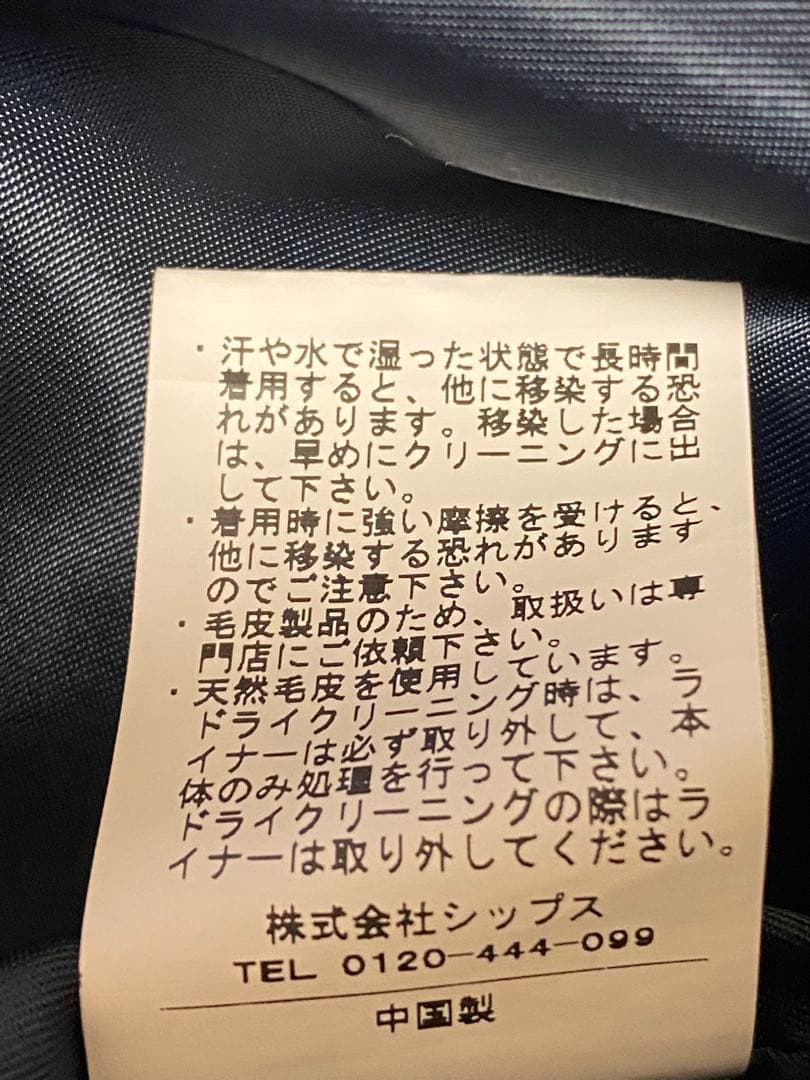 ・汗や水で湿った状態で長時間
着用すると、他に移染する恐
れがあります。移染した場合
は、早めにクリーニングに出
して下さい。
・着用時に強い摩擦を受けると、
他に移染する恐れがあります
のでご注意下さい。
・毛皮製品のため、取扱いは専
門店にご依頼下さい。
・天然毛皮を使用しています。
ドライクリーニング時は、ラ
イナーは必ず取り外して、本
体のみ処理を行って下さい。
ドライクリーニングの際はラ
イナーは取り外してください。
株式会社シップス
TEL 0120-444-099
中国製